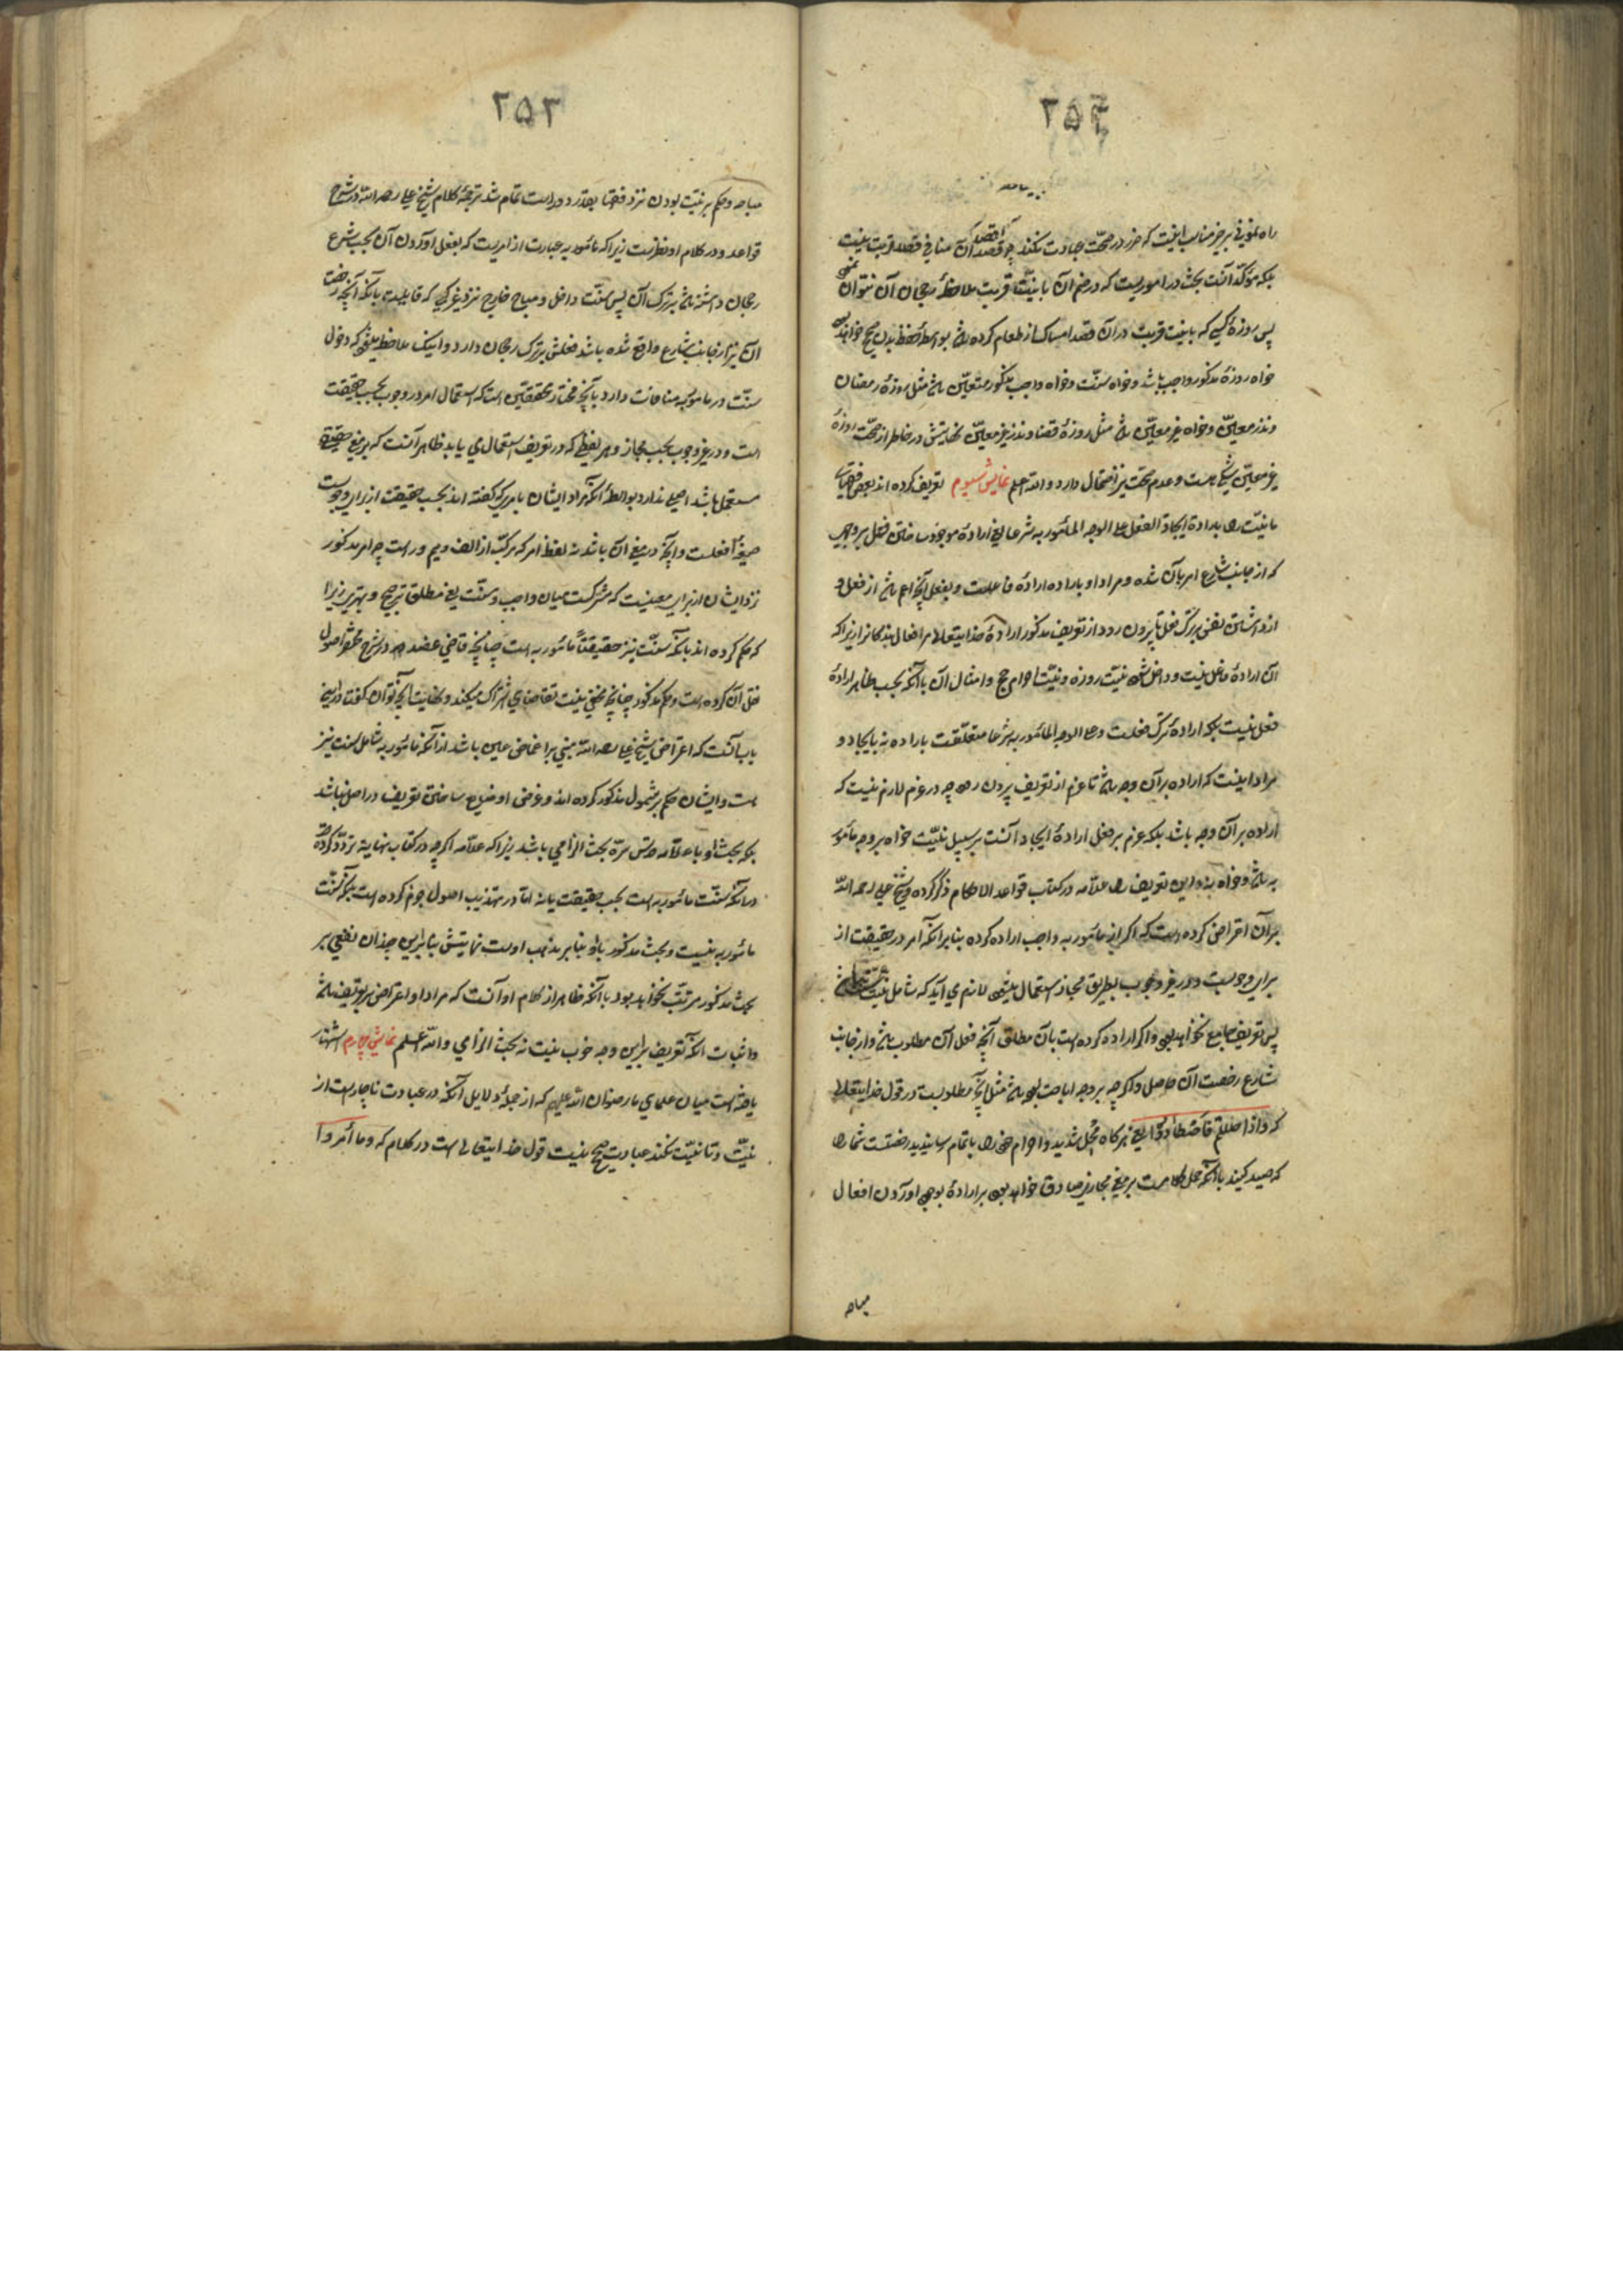 ۲۵۴
راه نمونی بر خیر مناسب اینست که ضرر در صحّت عبادت نکند چه قصد آن منافی قصد قربت نیست
بلکه مؤکّد آنست بحث در اموریست که در ضم آن با نیّت قربت ملاحظهٔ رجحان آن نتوان
پس روزهٔ کسی که با نیت قربت در آن قصد امساک از طعام کرده باشد بواسطهٔ حفظ بدن صحیح خواهد بود
خواه روزهٔ مذکور واجب باشد و خواه سنّت و خواه واجب مذکور متعیّن باشد مثل روزهٔ رمضان
و نذر معیّن و خواه غیر معیّن باشد مثل روزهٔ قضا و نذر غیر معیّن نهایتش در خاطر از صحّت روزهٔ
غیر معیّن شکی هست و عدم صحّت نیز احتمال دارد و الله اعلم نمایش سیوم تعریف کرده‌اند بعض فقها
ما نیّت را بارادة ایجاد الفعل علی الوجه المأمور به شرعا یعنی ارادهٔ موجود ساختن فعل بر وجهی
که از جانب شارع امر بآن شده و مراد او باراده ارادهٔ فاعلست و بفعل آنچه اعم باشد از فعل و
از داشتن نفس بر ترک فعل تا بیرون رود از تعریف مذکور ارادهٔ خدایتعالی مر افعال بندگانرا زیرا که
آن ارادهٔ فاعل نیست و داخل شود نیّت روزه و نیّت احرام حج و امثال آن با آنکه بحسب ظاهر ارادهٔ
فعل نیست بلکه ارادهٔ ترک فعلست و علی الوجه المأمور به شرعا متعلّقست باراده نه بایجاد و
مراد اینست که اراده بر آن وجه باشد تا عزم از تعریف بیرون رود چه در عزم لازم نیست که
اراده بر آن وجه باشد بلکه عزم بر فعل ارادهٔ ایجاد آنست بر سبیل نیّت خواه بر وجه مأمور
به باشد و خواه نه و این تعریف را علّامه در کتاب قواعد الاحکام ذکر کرده و شیخ علی رحمه الله
بر آن اعتراض کرده است که اگر از مأمور به واجب اراده کرده بنا بر آنکه امر در حقیقت از
برای وجوبست و در غیر وجوب بطریق مجاز استعمال میشود لازم می آید که شامل نیّت سنّت نباشد
پس تعریف جامع نخواهد بود و اگر اراده کرده است بآن مطلق آنچه فعل آن مطلوب باشد و از جانب
شارع رخصت آن حاصل و اگرچه بر وجه اباحت بود باشد مثل آنچه مطلوبست در قول خدایتعالی
که و اذا حللتم فاصطادوا یعنی هرگاه محل شدید و احرام خود را باتمام رسانیدید رخصتست شما را
که صید کنید با آنکه حمل کلام است بر معنی مجازی صادق خواهد بود بر ارادهٔ بوجود آوردن افعال
مباحه
۲۵۳
مباحه و حکم بر نیّت بودن نزد فقها بعد دور است تمام شد ترجمهٔ کلام شیخ علی رحمه الله در شرح
قواعد و در کلام او نظریست زیرا که مأمور به عبارت از امریست که بفعل آوردن آن بحسب شرع
رجحان داشته باشد بر ترک آن پس سنّت داخل و مباح خارج نزد غیر کعبی که قایلست بآنکه آنچه رخصت
آن نیز از جانب شارع واقع شده باشد فعلش بر ترک رجحان دارد و اینک ملاحظه میشود که دخول
سنّت در مأمور به منافات دارد با آنچه مختار محققین است که استعمال امر در وجوب بحسب حقیقت
است و در غیر وجوب بحسب مجاز و هر لفظی که در تعریف استعمال می یابد ظاهر آنست که بر معنی حقیقی
مستعمل باشد اصلی ندارد بواسطهٔ آنکه مراد ایشان بامری که گفته اند بحسب حقیقت از برای وجوبست
صیغهٔ افعلست و آنچه در معنی آن باشد نه لفظ امر که مرکّب از الف و میم و راست چه امر مذکور
نزد ایشان از برای معنیست که مشترکست میان واجب و سنّت یعنی مطلق ترجیح و بهتری زیرا
که حکم کرده اند بآنکه سنّت نیز حقیقتاً مأمور به است چنانچه قاضی عضد در شرح مختصر اصول
نقل آن کرده است و حکم مذکور چنانچه مخفی نیست تقاضای اشتراک میکند و نهایت آنچه توان گفت در این
باب آنست که اعتراض شیخ علی رحمه الله مبنی بر اغماض عین باشد از آنکه مأمور به شامل سنت نیز
هست و ایشان حکم بر شمول مذکور کرده اند و غرض او ضایع ساختن تعریف در اصل نباشد
بلکه بحث او با علّامه قدّس سرّه بحث الزامی باشد زیرا که علّامه اگرچه در کتاب نهایه تردّد کرده
در آنکه سنّت مأمور به است بحسب حقیقت یا نه امّا در تهذیب اصول جزم کرده است بآنکه سنّت
مأمور به نیست و بحث مذکور باو بنا بر مذهب اوست نهایتش بنا بر این چندان نفعی بر
بحث مذکور مرتّب نخواهد بود با آنکه ظاهر از کلام او آنست که مراد او اعتراض بر تعریف باشد
و اثبات آنکه تعریف بر این وجه خوب نیست نه بحث الزامی و الله اعلم نمایش چهارم اشتهار
یافته است میان علمای ما رضوان الله علیهم که از جملهٔ دلایل آنکه در عبادت ناچار است از
نیّت و تا نیّت نکند عبادت صحیح نیست قول خدایتعالی است در کلام که و ما أمروا